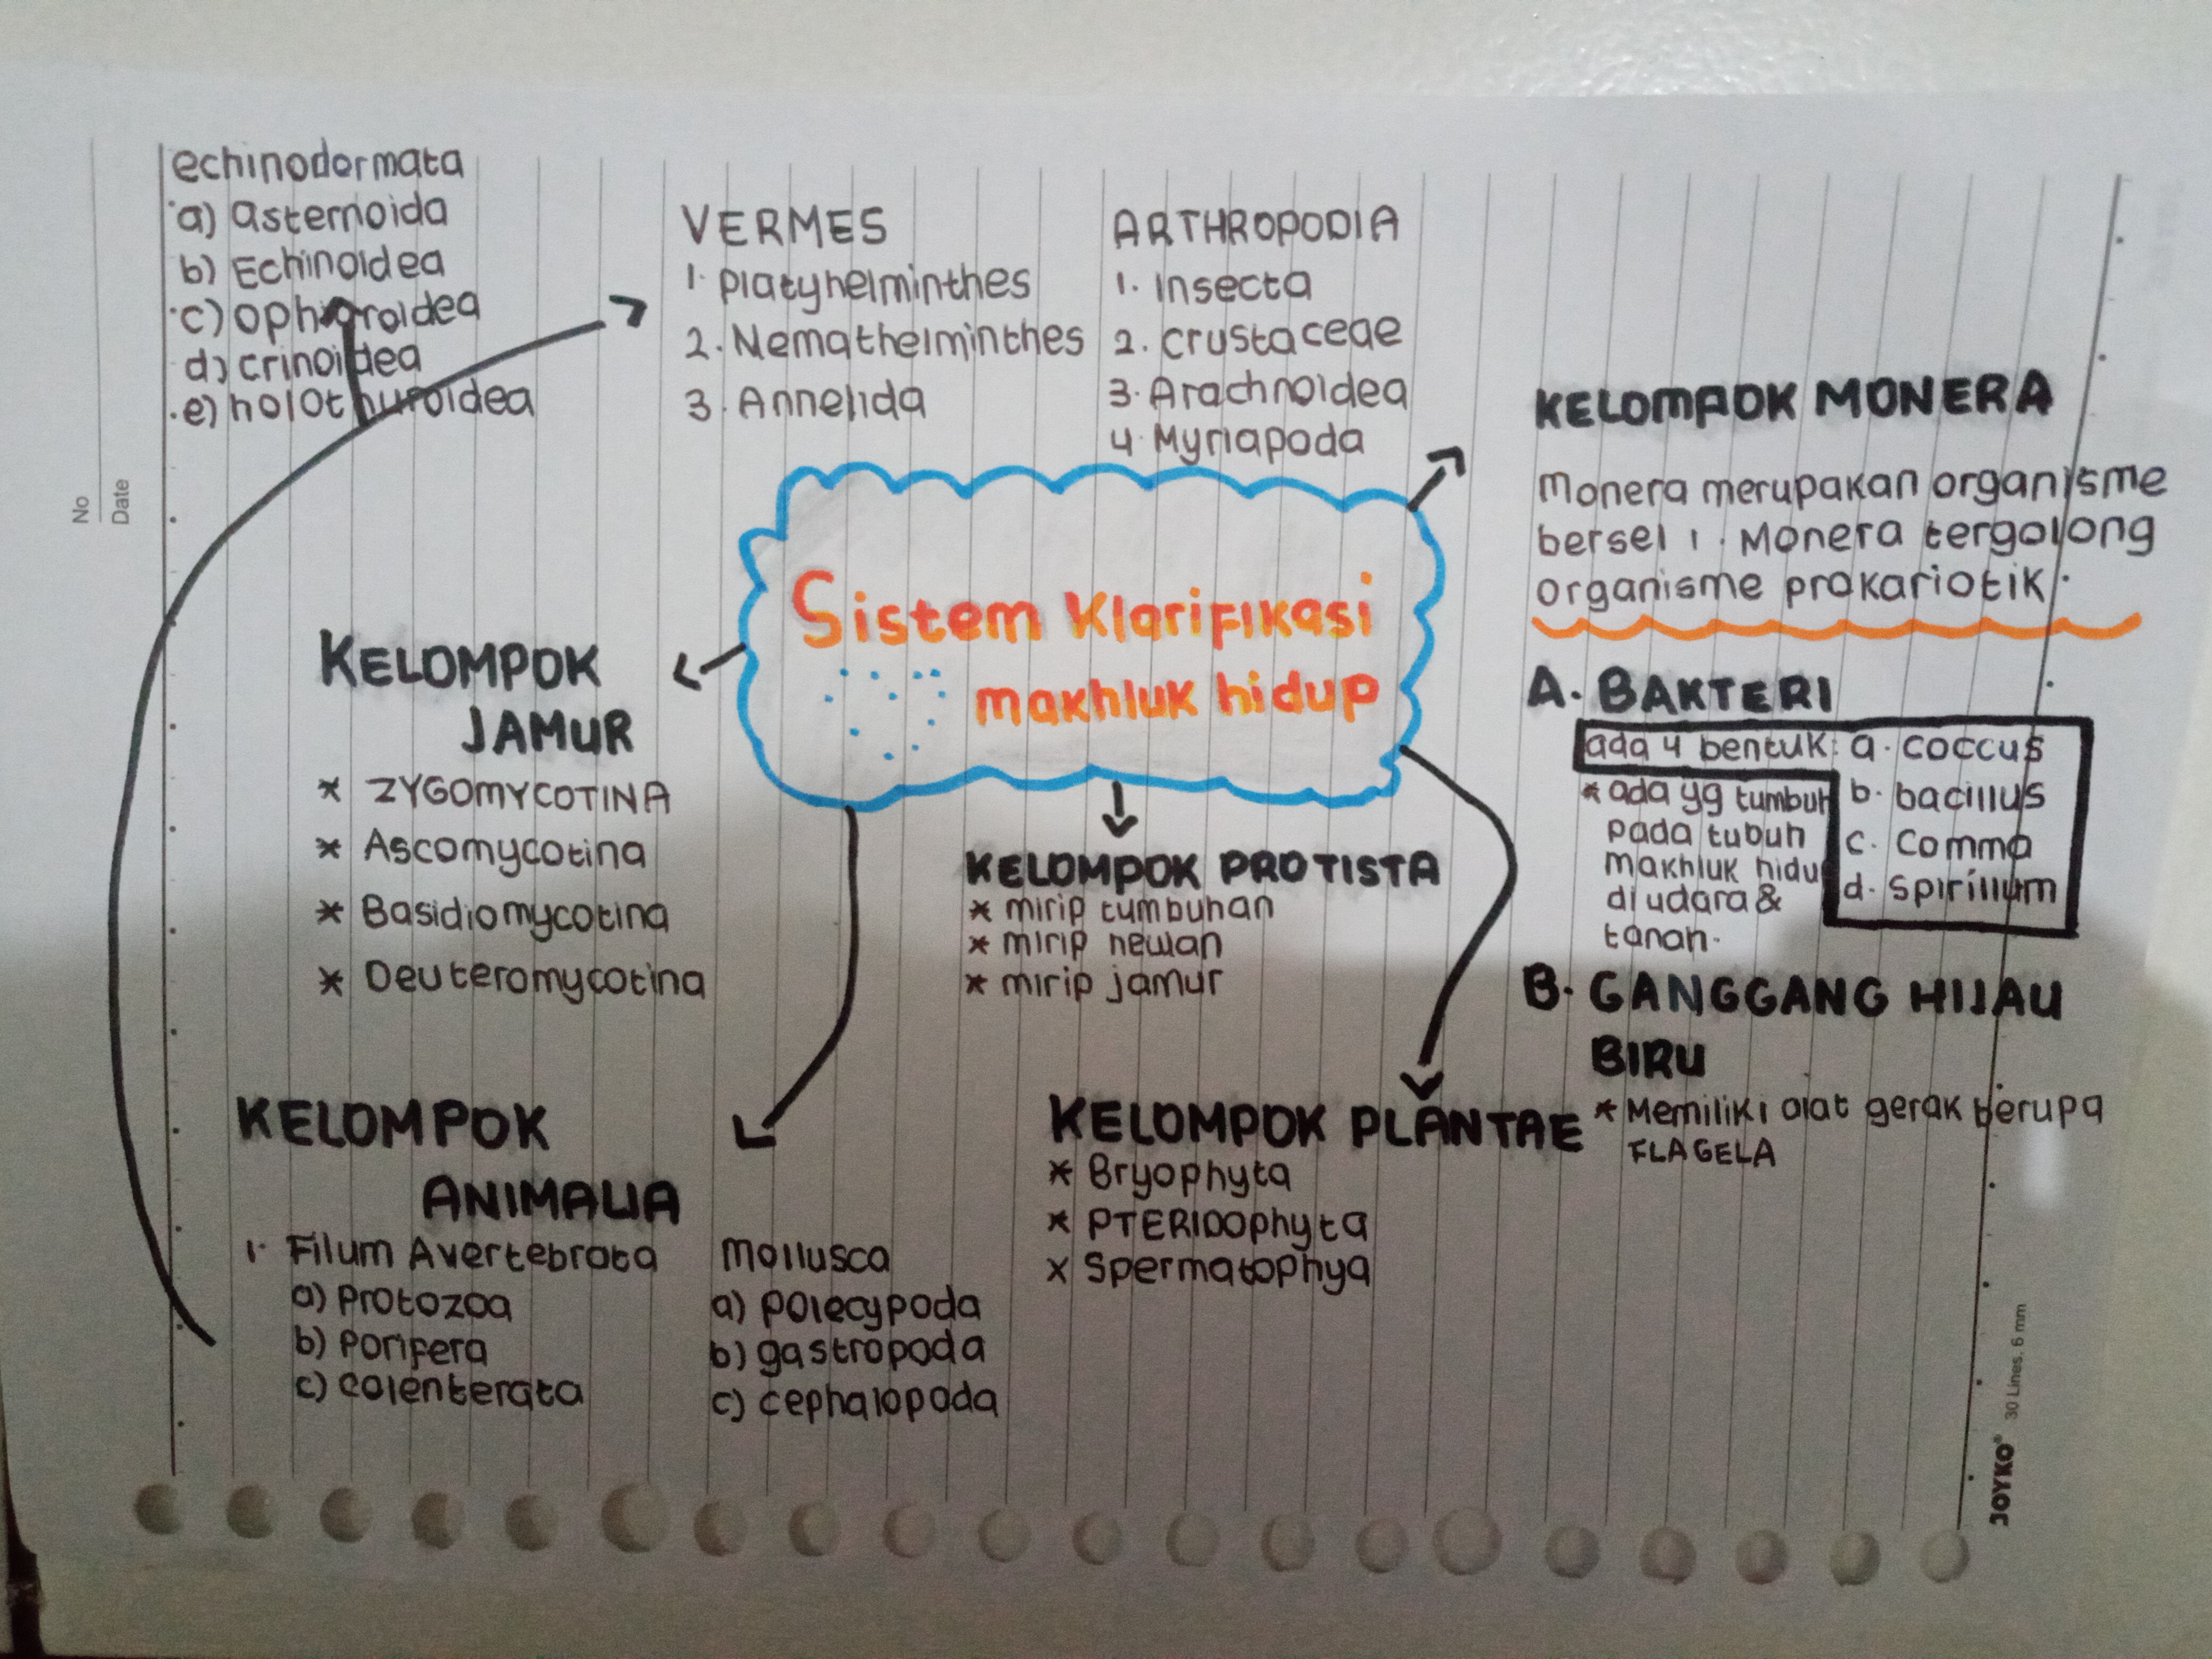 echinodermata
a) asternoida
b) Echinoidea
c) ophioroidea
d) crinoidea
e) holothuroidea
VERMES
1. Platyhelminthes
2. Nemathelminthes
3. Annelida
ARTHROPODIA
1. Insecta
2. crustaceae
3. Arachnoidea
4. Myriapoda
No
Date
Sistem Klarifikasi
makhluk hidup
KELOMPOK MONERA
Monera merupakan organisme
bersel 1. Monera tergolong
organisme prokariotik.
A. BAKTERI
ada 4 bentuk: a. coccus
b. bacillus
c. Comma
d. Spirillum
* ada yg tumbuh
pada tubuh
makhluk hidup
di udara &
tanah.
B. GANGGANG HIJAU
BIRU
* Memiliki alat gerak berupa
FLAGELA
KELOMPOK
JAMUR
* ZYGOMYCOTINA
* Ascomycotina
* Basidiomycotina
* Deuteromycotina
KELOMPOK PROTISTA
* mirip tumbuhan
* mirip hewan
* mirip jamur
KELOMPOK
ANIMALIA
1. Filum Avertebrata
a) Protozoa
b) Porifera
c) colenterata
Mollusca
a) polecypoda
b) gastropoda
c) cephalopoda
KELOMPOK PLANTAE
* Bryophyta
* PTERIDOphyta
x Spermatophya
JOYKO® 30 Lines, 6 mm